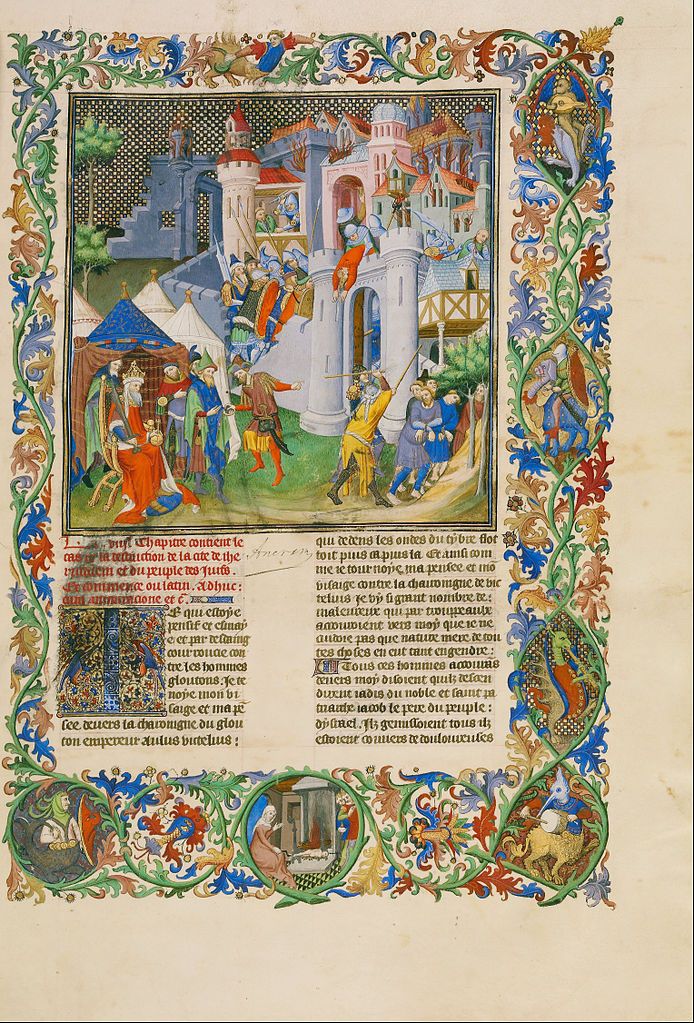 Le .viiie. Chapitre contient le
cas et la destruction de la cite de Ihe
rusalem et du peuple des Juifs.
Et commence ou latin. Adhuc
cum ammiracione et c̃.
E qui estoye
pensif et esmay
e et par desdaing
courroucie con
tre les hommes
gloutons. Je tor
noye mon vi
saige et ma pen
see devers la charoingne du glou
ton empereur Aulus vitelius :
qui dedens les ondes du tybre flot
toit puis ca puis la. Et ainsi com
me ie tournoye ma pensee et mo
visaige contre la charoingne de vic
telius Je vy si grant nombre de
maleureux qui par trouppeaux
accouroient vers moy que ie ne
cuidoie pas que nature mere de tou
tes choses en eut tant engendre.
Tous ces hommes accouras
devers moy disoient quilz descen
dirent iadis du noble et saint pa
triarche iacob le pere du peuple
dysrael. Ilz gemissoient tous ilz
estoient couvers de douloureuses